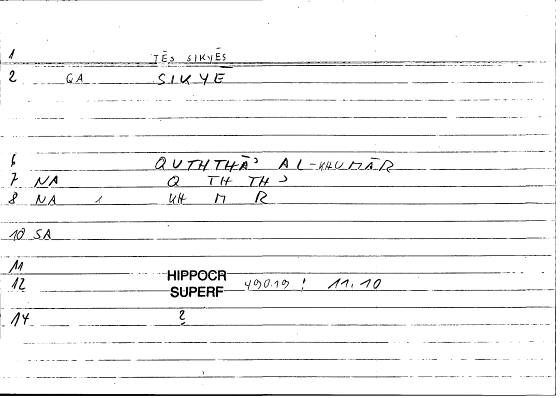 1 TĒS SIKYĒS
2 GA SIKYE
6 QUTHTHĀʾ AL-KHUMĀR
7 NA Q TH TH ʾ
8 NA 1 KH M R
10 SA
11
12 HIPPOCR 490.19 ! 11.10
SUPERF
14 2